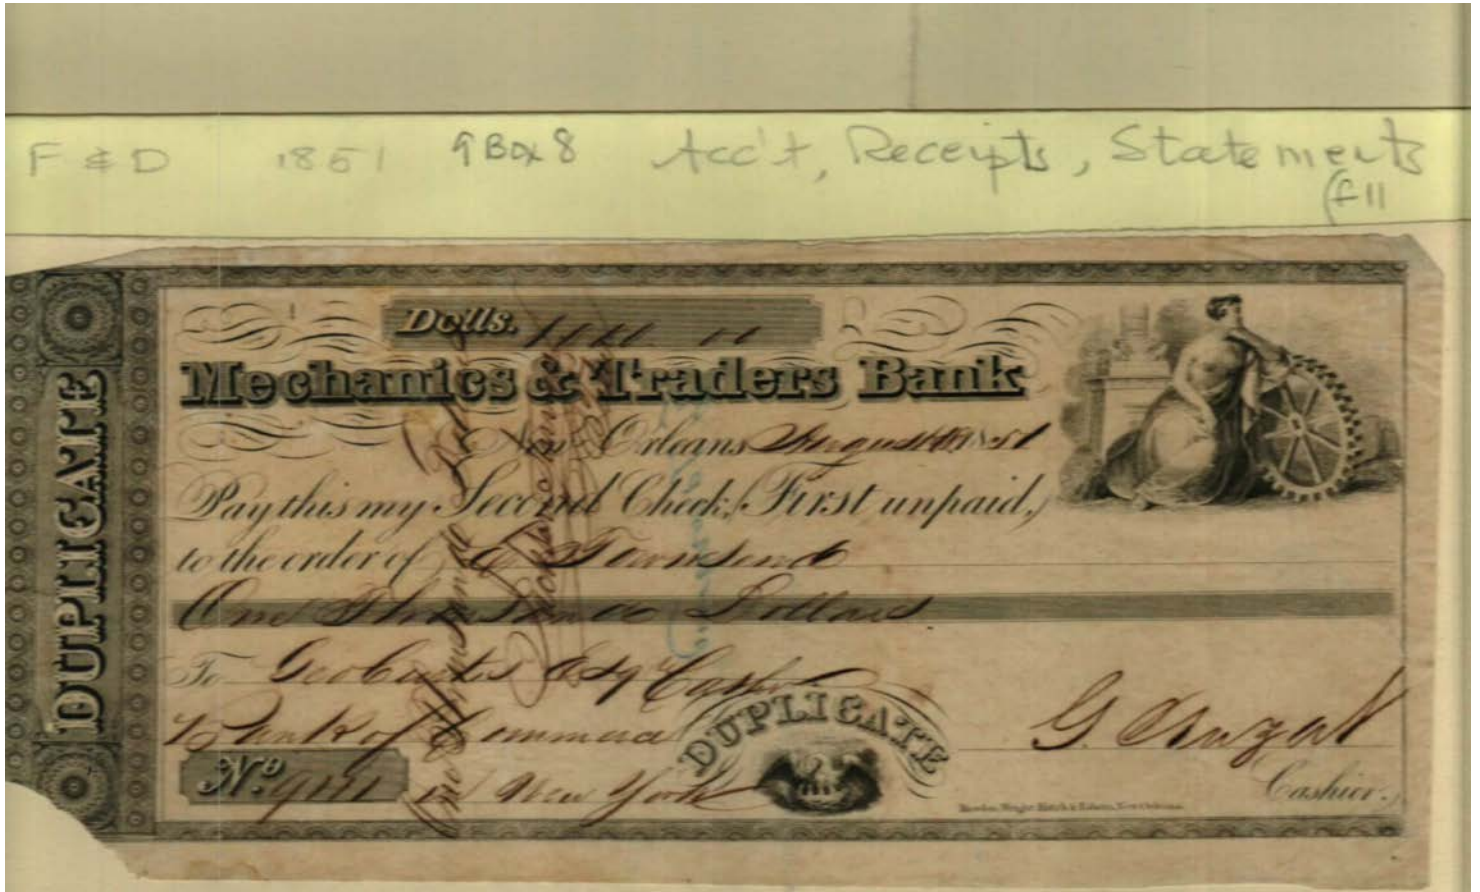 F & D 1851 9 Box 8 Acc't, Receipts, Statements
(f11
DUPLICATE
Dolls.
Mechanics & Traders Bank
New Orleans August 1851
Pay this my Second Check, (First unpaid,)
to the order of Townsend
One Thousand Dollars
To Geo Curtis Esqr Cashr
Bank of Commerce
DUPLICATE
No. New York
Cashier.
Rawdon, Wright, Hatch & Edson, New Orleans
One Thousand Dollars